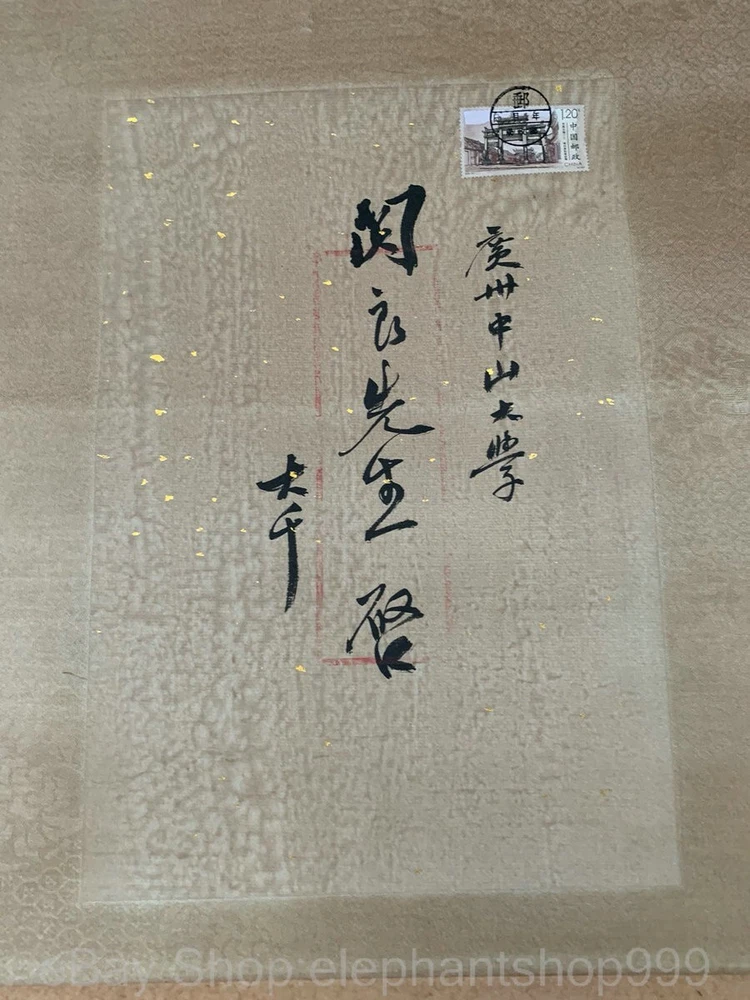 郵
1.20
中国邮政
CHINA
廣州中山大學
関良先生 啓
大千
Bay Shop:elephantshop999